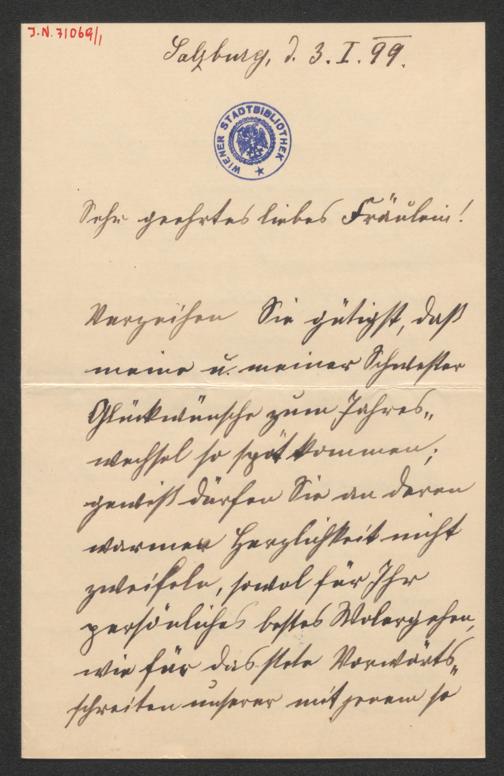 J.N. 71069/1
Salzburg, d. 3. I. 99.
WIENER STADTBIBLIOTHEK
Sehr geehrtes liebes Fräulein!
Verzeihen Sie gütigst, daß
meine u. meiner Schwester
Glückwünsche zum Jahres„
wechsel so spät kommen;
gewiß dürfen Sie an deren
warmer Herzlichkeit nicht
zweifeln, sowol für Ihr
persönliches bestes Wolergehen,
wie für das stete Vorwärts„
schreiten unserer mit jenem so